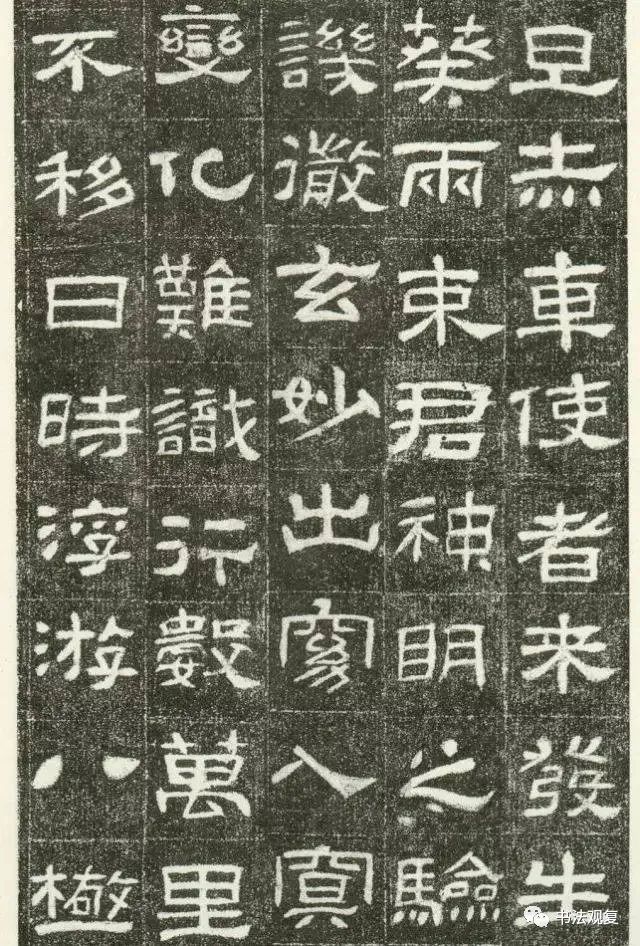 旦赤車使者来發生
葵兩束君神明之驗
譏徹玄妙出窈入冥
變化難識行數萬里
不移日時浮游八極
书法观复